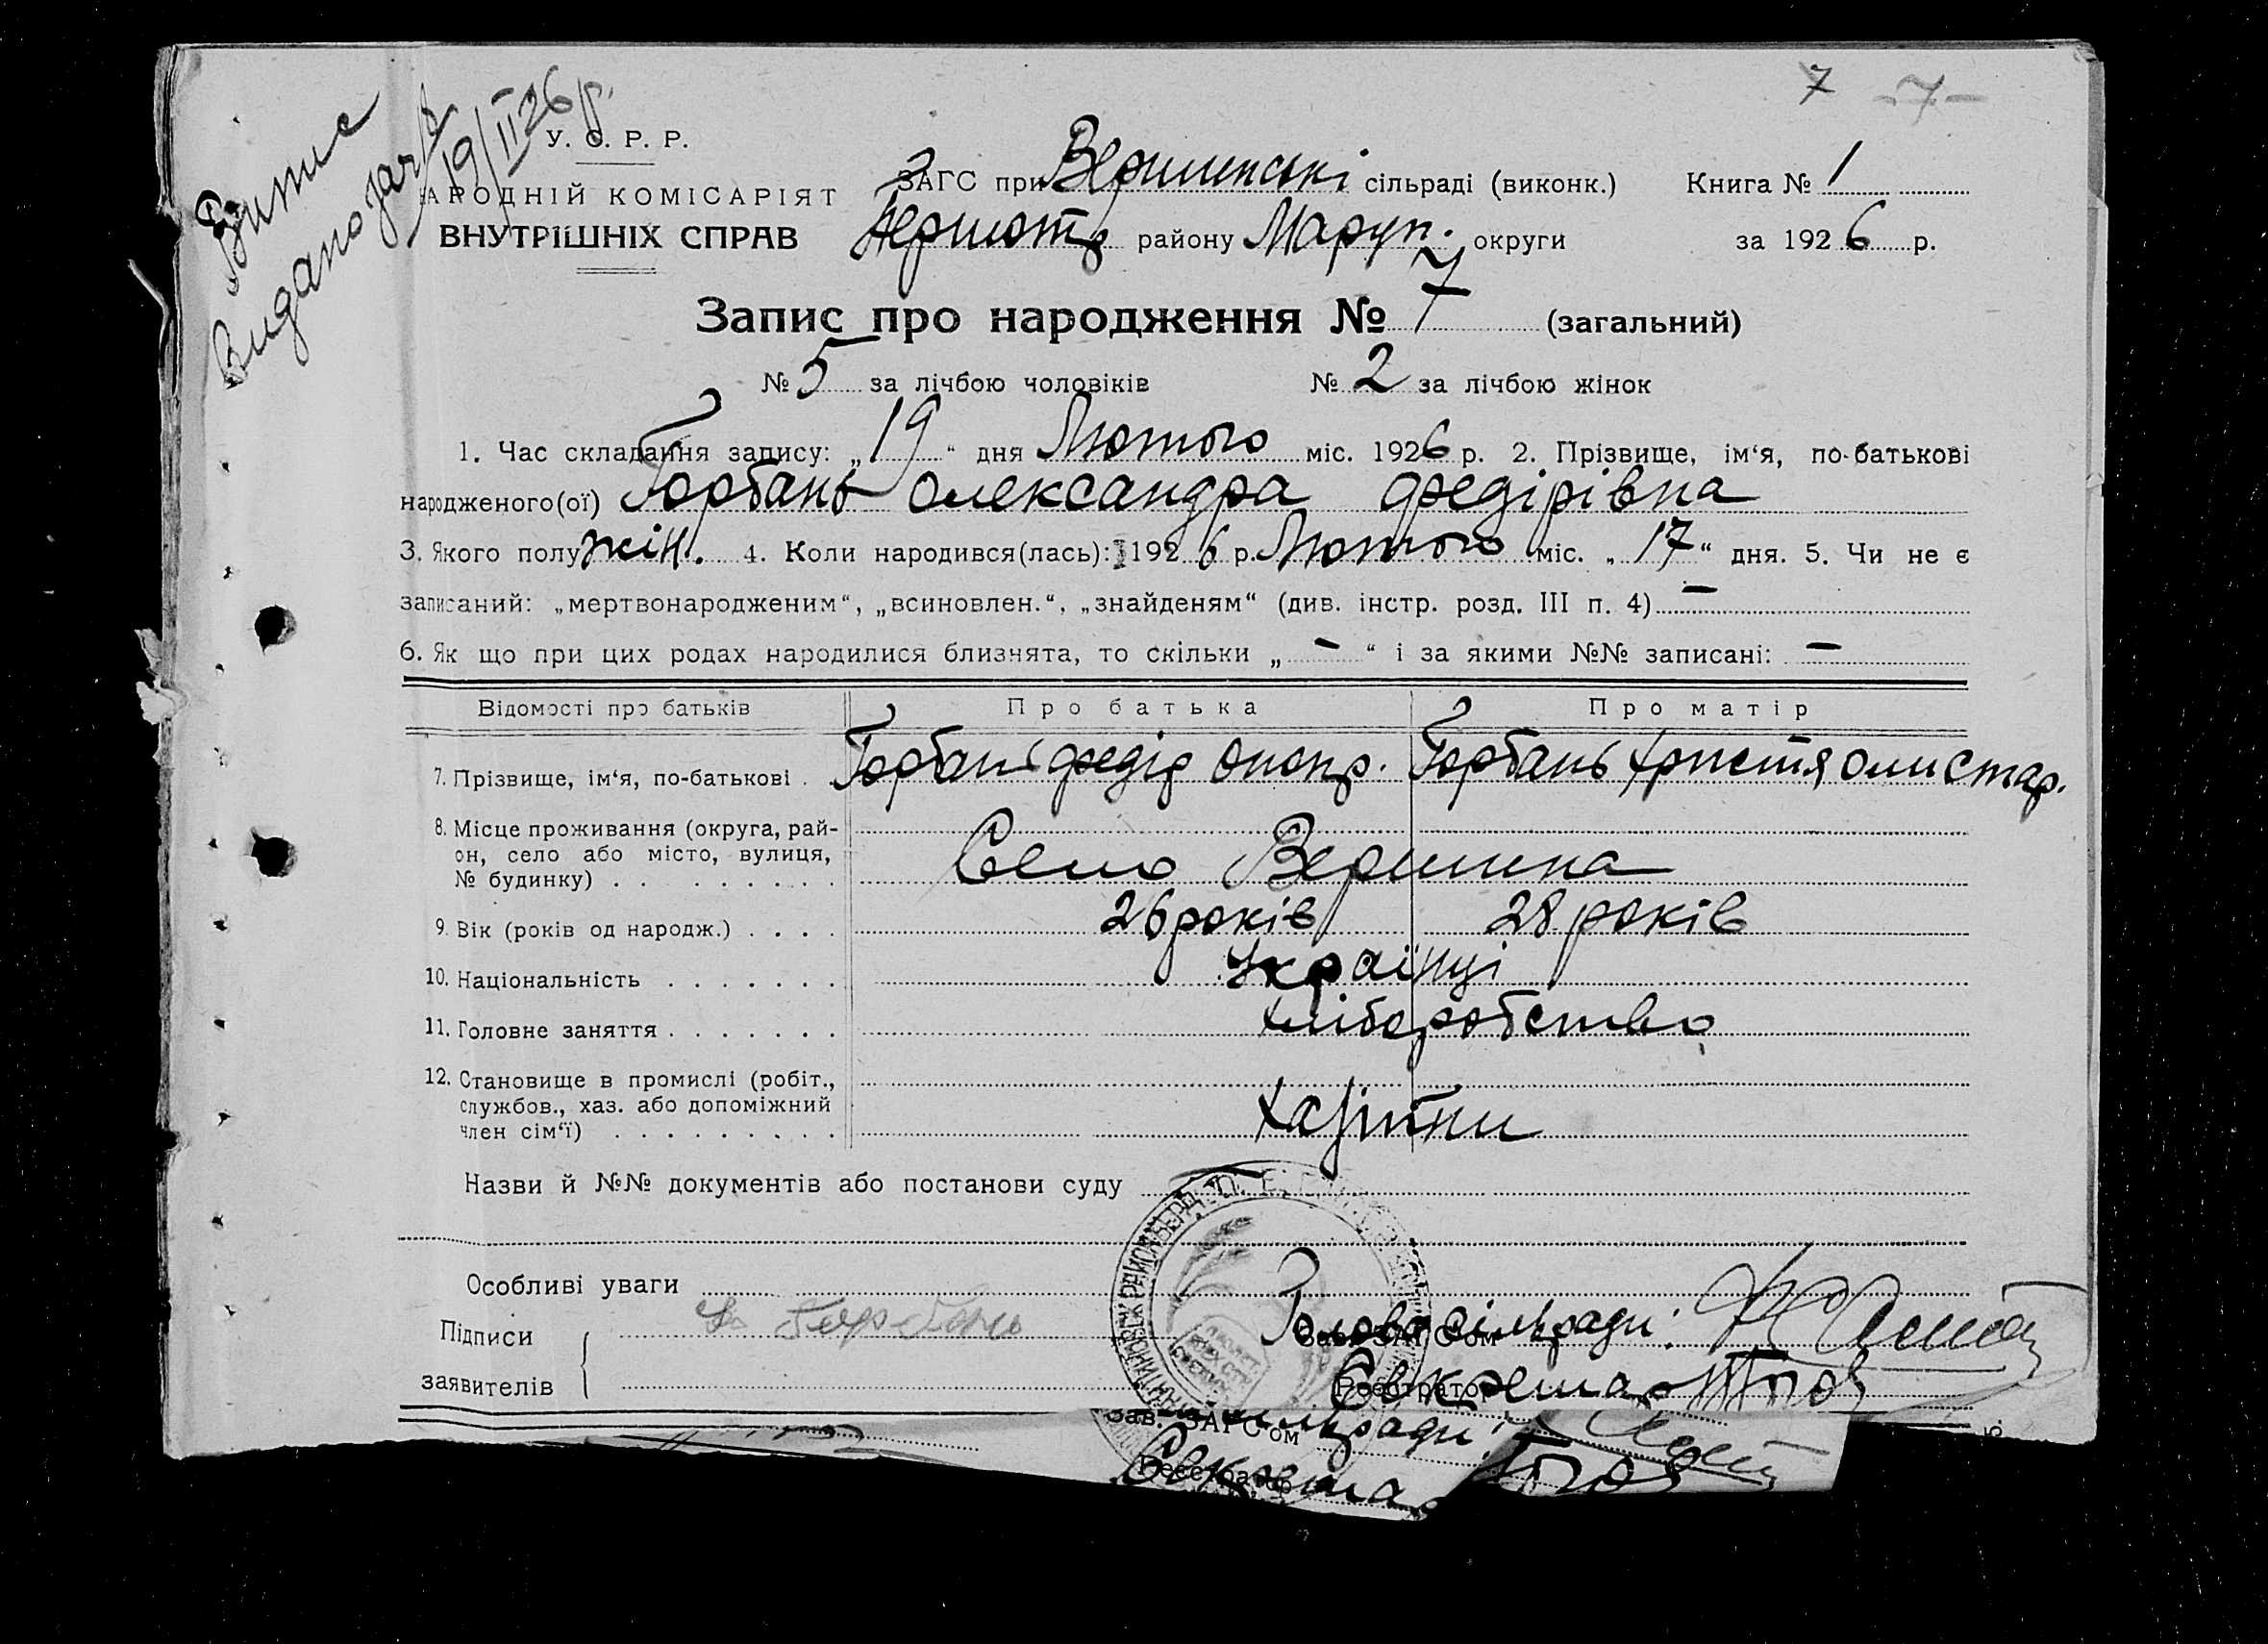 7 -7-
Витяг
видано за № 7
19/II 26 р.
У. С. Р. Р.
НАРОДНІЙ КОМІСАРІЯТ
ВНУТРІШНІХ СПРАВ
ЗАГС при Вершинські сільраді (виконк.) Книга № 1
району Маруп. округи за 1926 р.
Запис про народження № 7 (загальний)
№ 5 за лічбою чоловіків № 2 за лічбою жінок
1. Час складання запису: „19“ дня Лютого міс. 1926 р. 2. Прізвище, ім‘я, по-батькові
народженого(ої) Горбань Олександра Федірівна
3. Якого полу жін. 4. Коли народився(лась): 1926 р. Лютого міс. „17“ дня. 5. Чи не є
записаний: „мертвонародженим“, „всиновлен.“, „знайденям“ (див. інстр. розд. III п. 4) —
6. Як що при цих родах народилися близнята, то скільки „—“ і за якими №№ записані: —
Відомості про батьків Про батька Про матір
7. Прізвище, ім‘я, по-батькові . Горбань Федір Онопр. Горбань Христя Олистар.
8. Місце проживання (округа, рай-
он, село або місто, вулиця,
№ будинку) . . . . . . . . . Село Вершина
9. Вік (років од народж.) . . . . 26 років 28 років
10. Національність . . . . . . . Українці
11. Головне заняття . . . . . . . Хліборобство
12. Становище в промислі (робіт.,
службов., хаз. або допоміжний
член сім‘ї) . . . . . . . . .
Назви й №№ документів або постанови суду
Особливі уваги
Підписи Горбань Голова сільради:
Зав. ЗАГС‘ом
заявителів Секретар
Реєстратор
Зав. ЗАГС‘ом сільради:
Секретар
Реєстратор